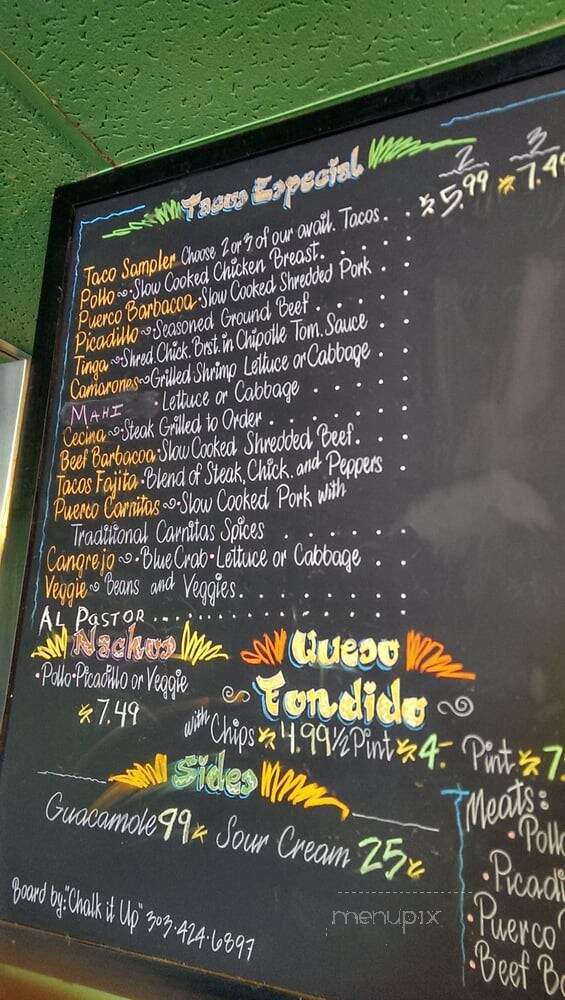 Tacos Especial
2 3
$5.99 $7.49
Taco Sampler Choose 2 or 3 of our avail. Tacos. . .
Pollo ~ Slow Cooked Chicken Breast. . . . . .
Puerco Barbacoa • Slow Cooked Shredded Pork . .
Picadillo ~ Seasoned Ground Beef . . . . . .
Tinga ~ Shred Chick. Brst. in Chipotle Tom. Sauce . .
Camarones ~ Grilled Shrimp Lettuce or Cabbage . .
MAHI • Lettuce or Cabbage . . . . . .
Cecina ~ Steak Grilled to Order . . . . . . . .
Beef Barbacoa • Slow Cooked Shredded Beef. . . .
Tacos Fajita • Blend of Steak, Chick. and Peppers .
Puerco Carnitas ~ • Slow Cooked Pork with
Traditional Carnitas Spices . . . . . . .
Cangrejo ~ • Blue Crab • Lettuce or Cabbage . . .
Veggie ~ Beans and Veggies. . . . . . . . .
AL PASTOR . . . . . . . . . . . . . . . .
Nachos
• Pollo • Picadillo or Veggie
$7.49
Queso
Fondido
with Chips $4.99 ½ Pint $4.- Pint $7.
Sides
Guacamole 99¢ Sour Cream 25¢
Meats:
• Pollo
• Picadi
• Puerco
• Beef Ba
Board by: "Chalk it Up" 303•424•6897
menupix